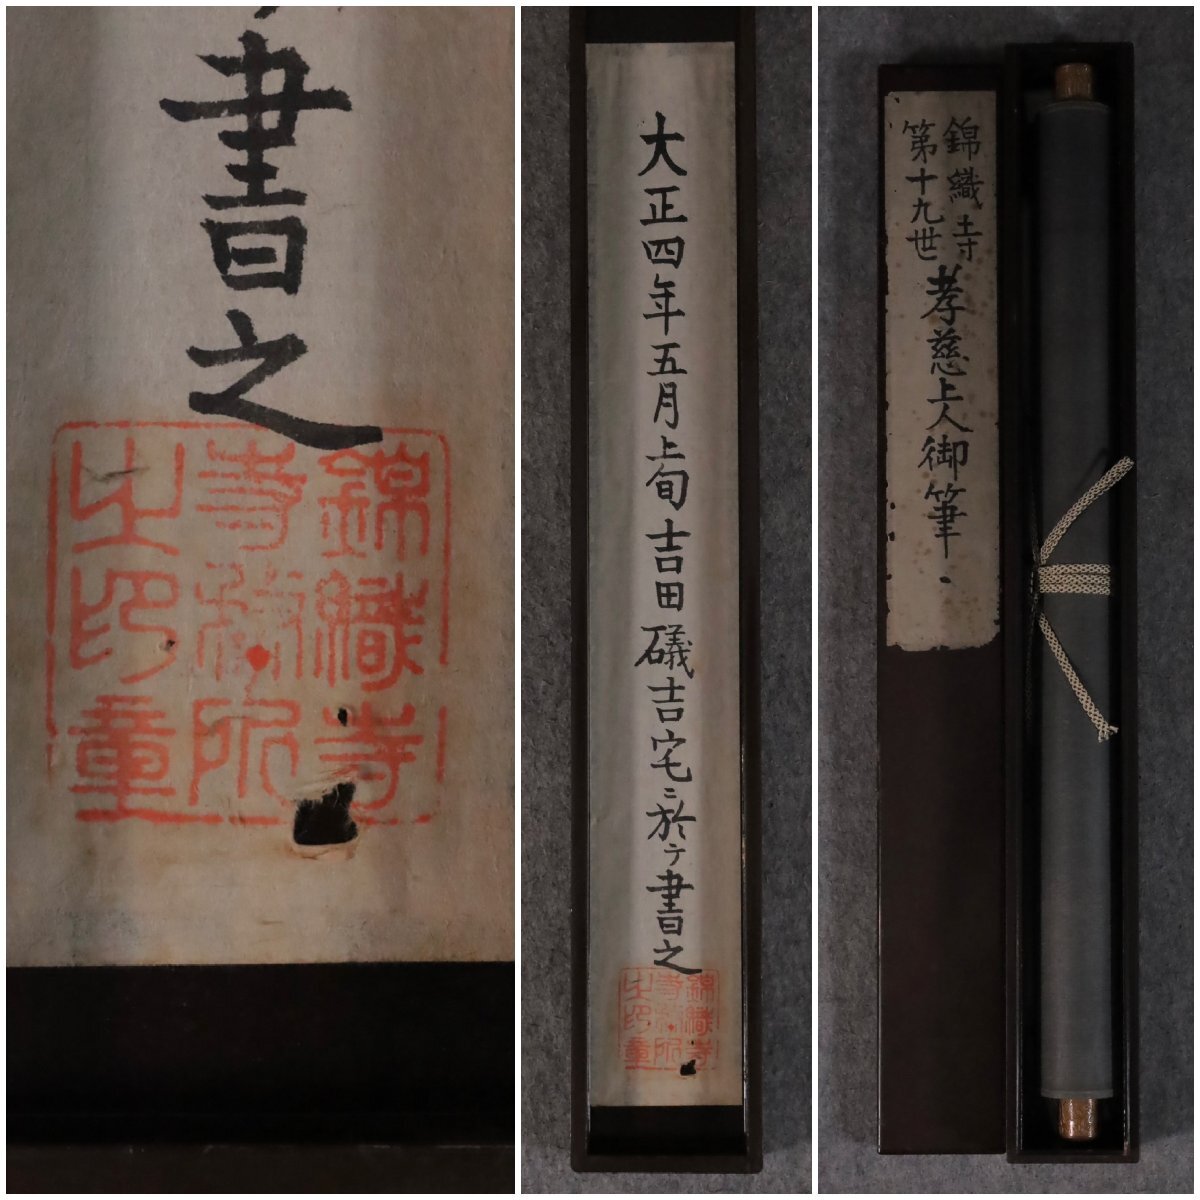 書之
錦織寺
寺務所
之印章
大正四年五月上旬吉田礒吉宅ニ於テ書之
錦織寺
寺務所
之印章
錦織寺
第十九世
孝慈上人御筆